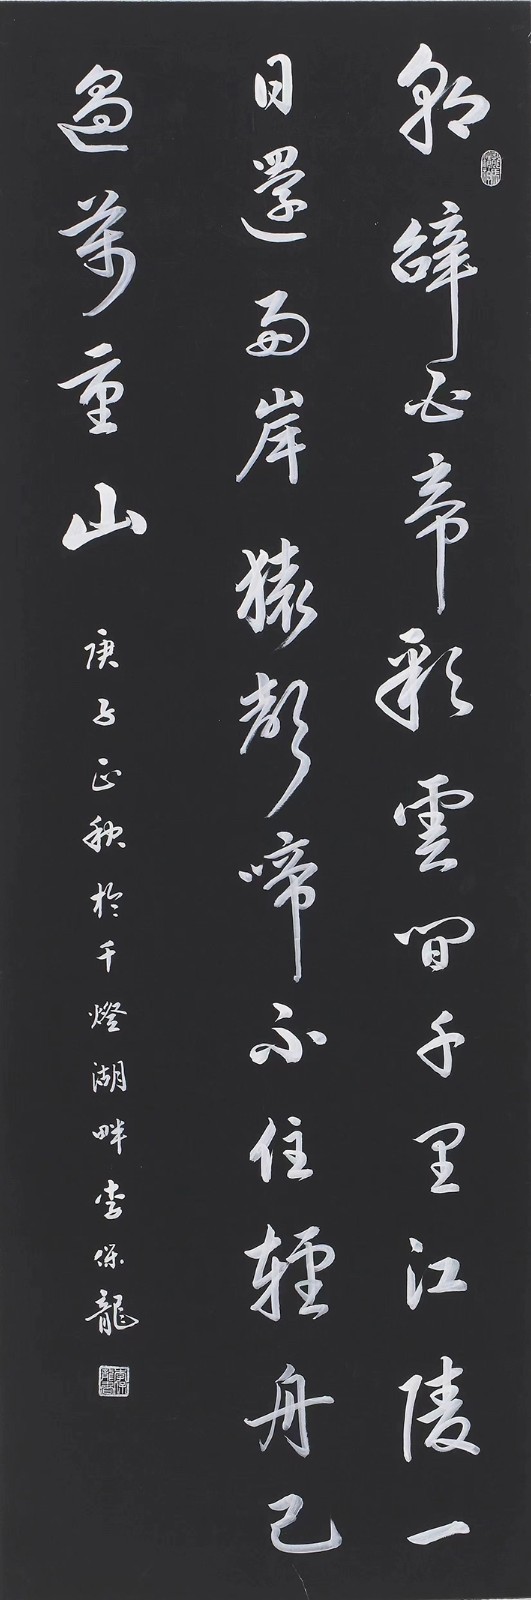 朝辞白帝彩雲間千里江陵一
日還兩岸猿聲啼不住輕舟已
過萬重山
庚子正秋於千燈湖畔李保龍